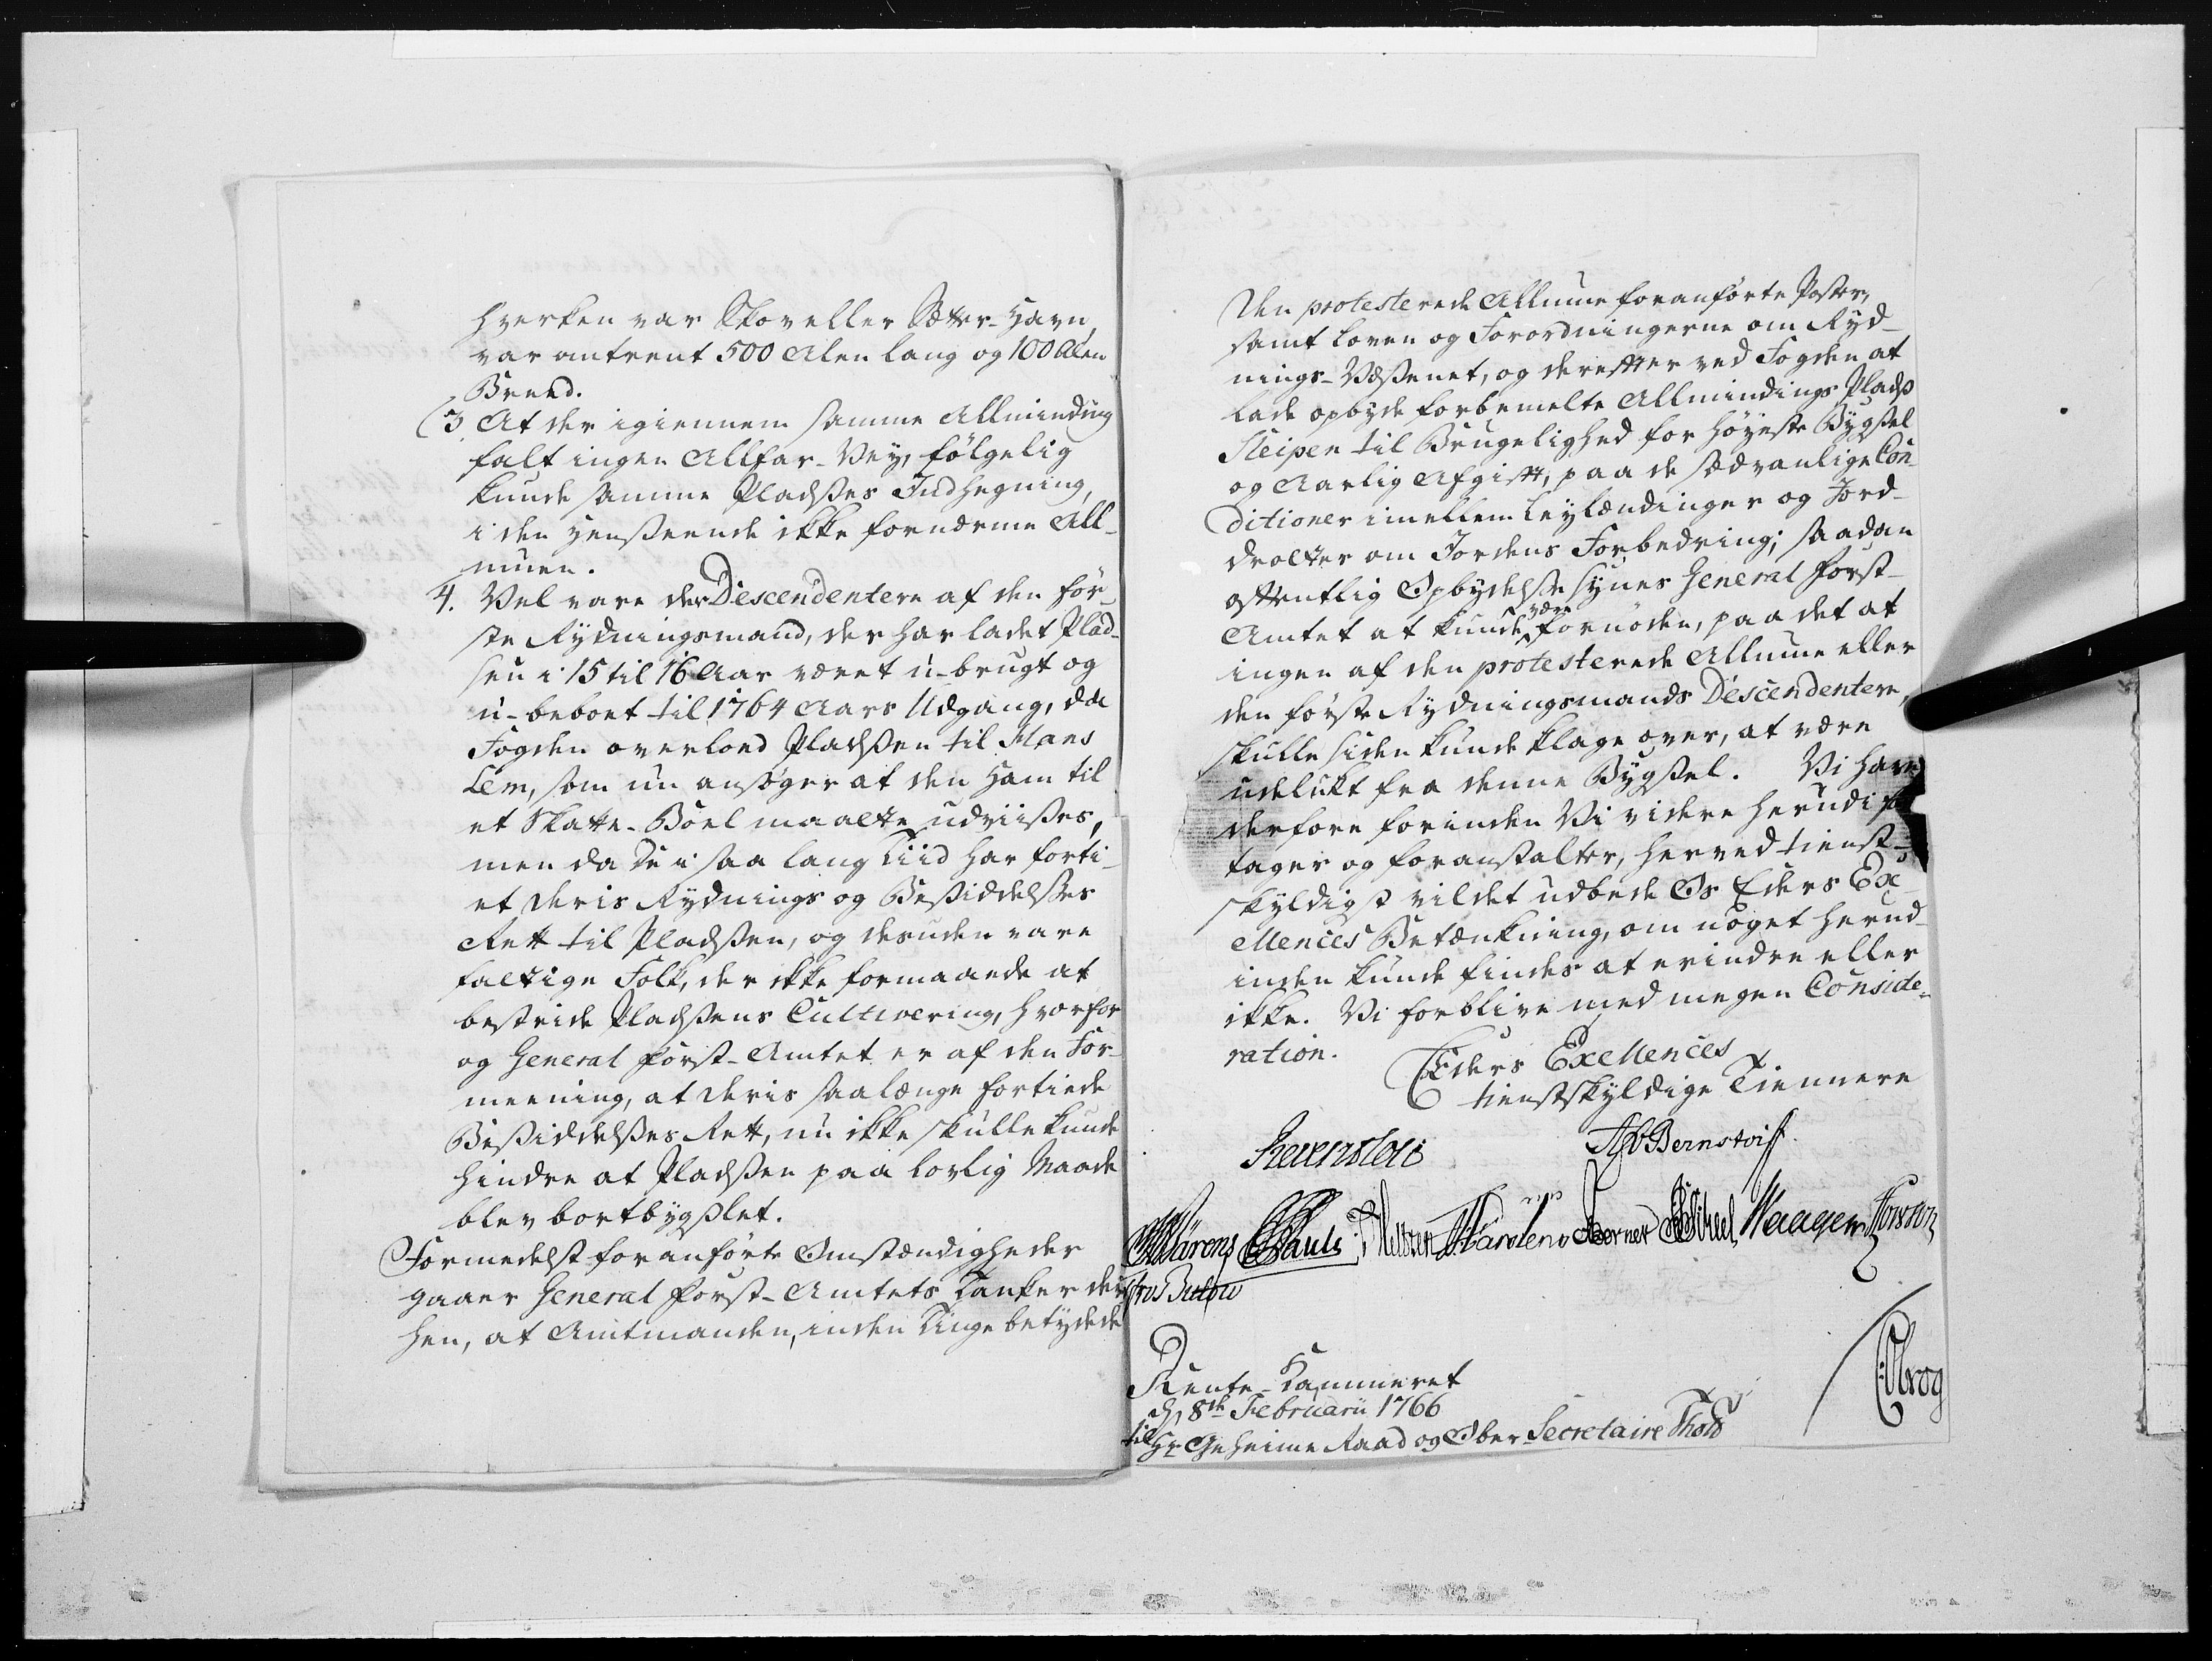 hverken var Skov eller Sætter-Havn,
var omtrent 500 Alen lang og 100 Alen
Breed.
3. At der igiennem samme Allminding
falt ingen Allfar-Vey, følgelig
kunde samme Pladses Indhegning,
i den henseende ikke fornærme All-
muen.
4. Vel vare der Descendentere af den før-
ste Rydningsmand, der har ladet Plad-
sen i 15 til 16 Aar været u-brugt og
u-beboet til 1764 Aars Udgang, da
Fogden overlod Pladsen til Hans
Lem, som nu ansøger at den ham til
et Skatte-Böel maatte udviises,
men da De i saa lang Tiid har forti-
et deris Rydnings og Besiddelses
Rett til Pladsen, og desuden vare
fattige Folk, der ikke formaaede at
bestride Pladsens Cultivering, hvorfor
og General Forst-Amtet er af den For-
meening, at deris saalænge fortiede
Besiddelses Rett, nu ikke skulle kunde
hindre at Pladsen paa lovlig Maade
blev bortbygslet.
Formedelst foranførte Omstændigheder
gaaer General Forst-Amtets Tanker der
hen, at Amtmanden, inden Tinge betydede
den protesterede Allmue foranførte Poster,
samt Loven og Forordningerne om Ryd-
nings-Væsenet, og derefter ved Fogden at
lade opbyde forbemelte Allmindings Plads
Sleipen til Brugelighed for høyeste Bygsel
og Aarlig Afgift, paa de sædvanlige Con-
ditioner imellem Leylændinger og Jord-
drotter om Jordens Forbedring; saadan
offentlig Opbydelse synes General Forst-
Amtet at kunde være fornøden, paa det at
ingen af den protesterede Allmue eller
den første Rydningsmands Descendentere,
skulle siden kunde klage over, at være
udelukt fra denne Bygsel. Vi have
derfore forinden Vi videre herudi for
tager og foranstalter, herved tienst-
skyldigst vildet udbede Os Eders Ex-
ellences Betænkning, om noget herud-
inden kunde findes at erindre eller
ikke. Vi forblive med megen Conside-
ration.
Eders Exellences
tienstskyldige Tiennere
Reventlou AvBernstorff.
Pauli Kaagen
FrvBulow
Rente-Kammeret
d. 8de Februarii 1766
til
Hr. Geheime Raad og Ober-Secretaire Thott